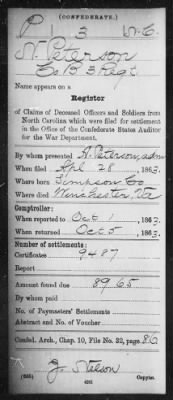 (CONFEDERATE.)
P 3 N.C.
N. Peterson
Co B. 3 Regt
Name appears on a
Register
of Claims of Deceased Officers and Soldiers from
North Carolina which were filed for settlement
in the Office of the Confederate States Auditor
for the War Department.
By whom presented A. Peterson, adm
When filed Apl 28, 1863.
Where born Simpson Co
Where died Winchester, Va
Comptroller:
When reported to Oct 1, 1863.
When returned Oct 5, 1863.
Number of settlements:
Certificates 9487
Report
Amount found due 89.65
By whom paid
No. of Paymasters' Settlements
Abstract and No. of Voucher
Confed. Arch., Chap. 10, File No. 32, page 86
J. Nelson
(635) Copyist.